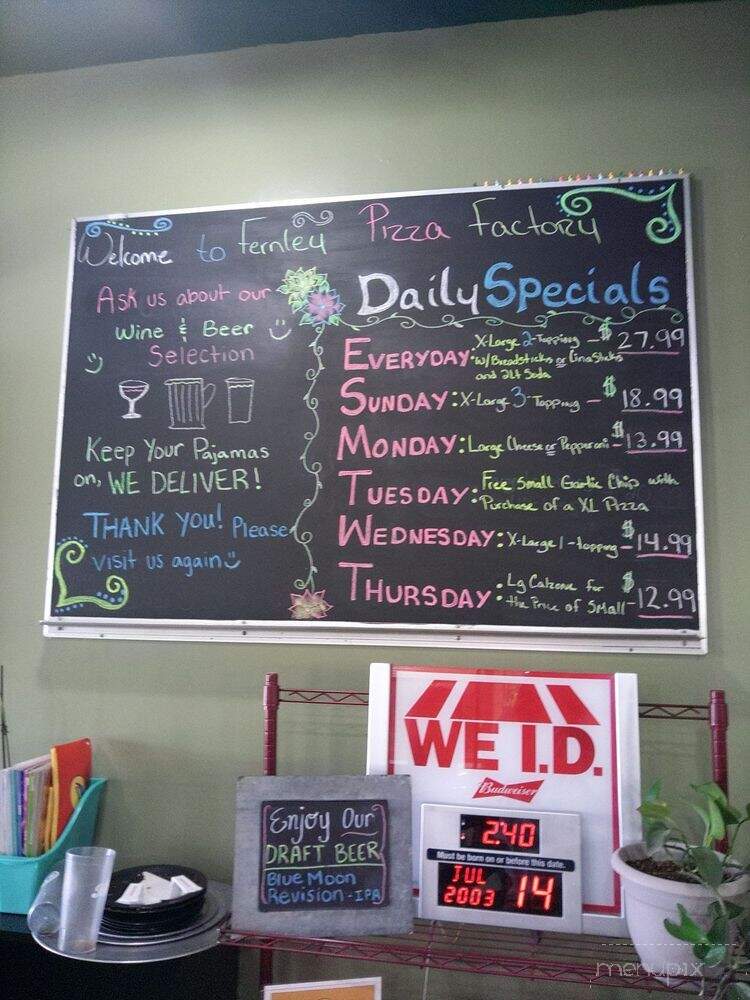 Welcome to Fernley Pizza Factory
Ask us about our
Wine & Beer
Selection
Keep Your Pajamas
on, WE DELIVER!
THANK YOU! Please
visit us again
Daily Specials
EVERYDAY: X-Large 2-Topping - $27.99
w/Breadsticks or CinaSticks
and 2Lt Soda
SUNDAY: X-Large 3-Topping - $18.99
MONDAY: Large Cheese or Pepperoni - $13.99
TUESDAY: Free Small Garlic Chip with
Purchase of a XL Pizza
WEDNESDAY: X-Large 1-topping - $14.99
THURSDAY: Lg Calzone for
the Price of Small - $12.99
WE I.D.
Budweiser
2:40
Must be born on or before this date.
JUL
2003 14
Enjoy Our
DRAFT BEER
Blue Moon
Revision - IPA
menupix